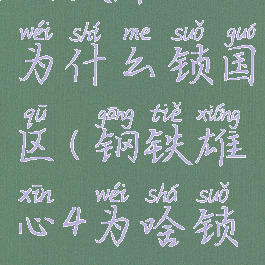 wéi shí me suǒ guó
为什么锁国
qū gāng tiě xióng
区(钢铁雄
xīn wéi shá suǒ
心4为啥锁